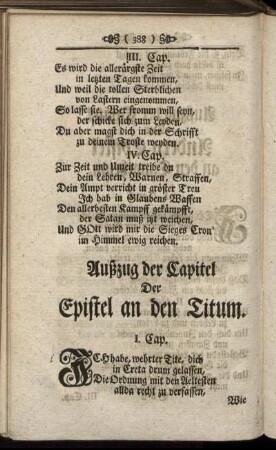 ( 288 )
III. Cap.
Es wird die allerärgste Zeit
in letzten Tagen kommen,
Und weil die tollen Sterblichen
von Lastern eingenommen,
So lasse sie. Wer fromm will seyn,
der schicke sich zum Leyden,
Du aber magst dich in der Schrifft
zu deinem Troste weyden.
IV. Cap.
Zur Zeit und Unzeit treibe du
dein Lehren, Warnen, Straffen,
Dein Ampt verricht in gröster Treu
Ich hab in Glaubens Waffen
Den allerbesten Kampff gekämpfft,
der Satan muß itzt weichen,
Und GOtt wird mir die Sieges Cron
im Himmel ewig reichen.
Außzug der Capitel
Der
Epistel an den Titum.
I. Cap.
ICH habe, wehrter Tite, dich
in Creta drum gelassen,
Die Ordnung mit den Aeltesten
allda recht zu verfassen,
Wie